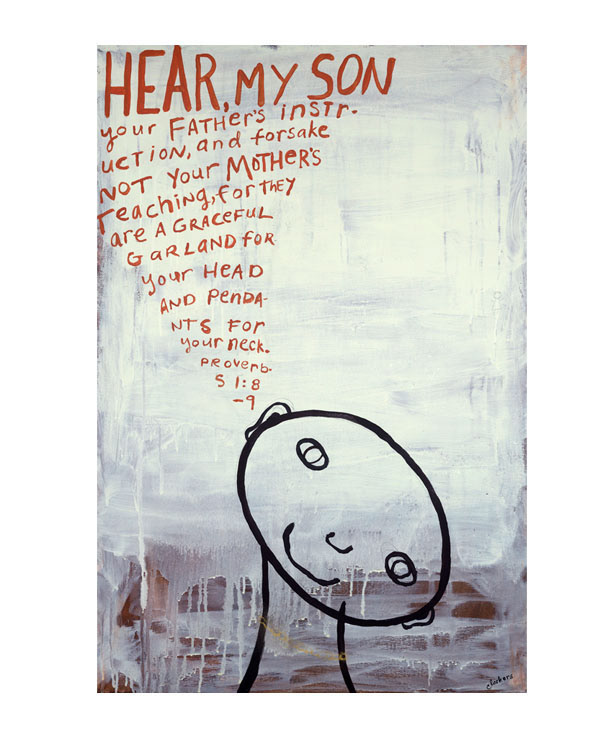 HEAR, MY SON
your FATHER'S instr-
uction, and forsake
NOT your MOTHER'S
Teaching, for THEY
are A GRACEFUL
GARLAND FOR
your HEAD
AND PENDA-
NTS FOR
your neck.
PROVERB-
S 1:8
-9